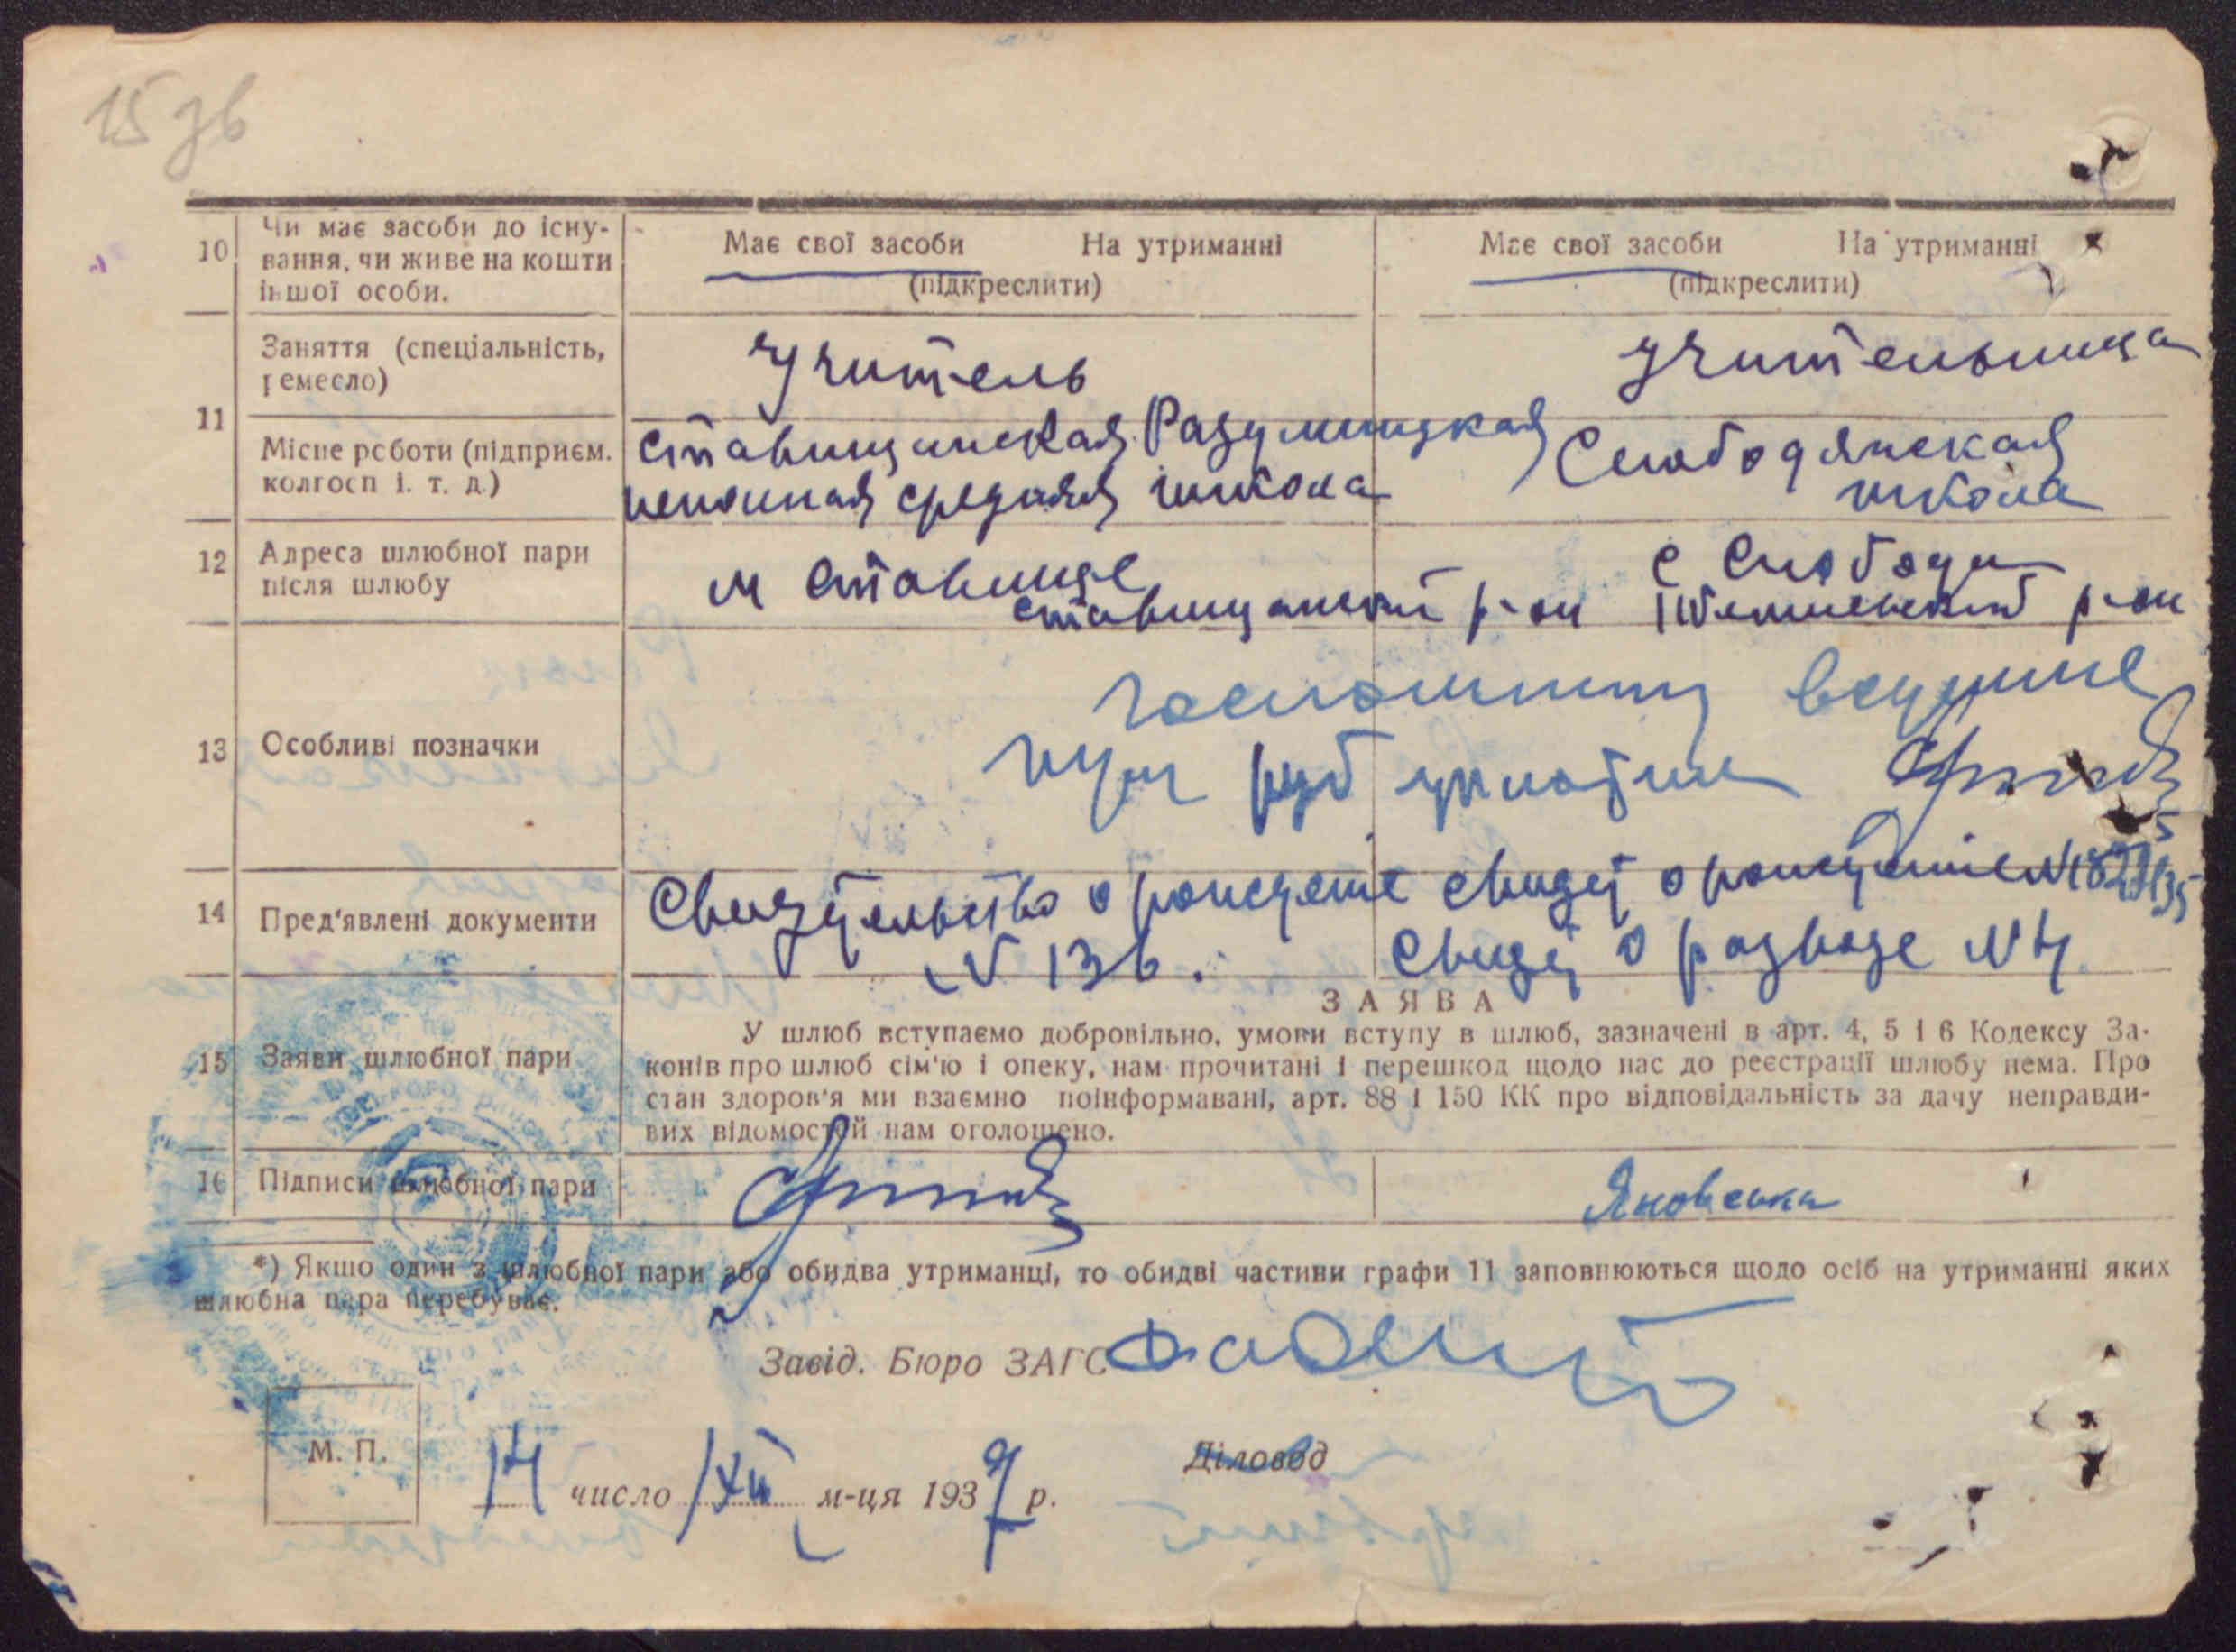 15 зв
10 Чи має засоби до існу-
вання, чи живе на кошти
іншої особи.
Має свої засоби На утриманні
(підкреслити)
Має свої засоби На утриманні
(підкреслити)
11 Заняття (спеціальність,
ремесло)
Учитель
учительница
Місце роботи (підприєм.
колгосп і. т. д.)
Ставищанская Разумницкая
неполная средняя школа
Слободянская
школа
12 Адреса шлюбної пари
після шлюбу
м Ставище
Ставищанский р-он
с Слобода
р-он
13 Особливі позначки
руб
14 Пред'явлені документи
Свидетельство о рождение
N 136.
Свидет о рождение N
Свидет о разводе N 4
15 Заяви шлюбної пари
ЗАЯВА
У шлюб вступаємо добровільно, умови вступу в шлюб, зазначені в арт. 4, 5 і 6 Кодексу За-
конів про шлюб сім'ю і опеку, нам прочитані і перешкод щодо нас до реєстрації шлюбу нема. Про
стан здоров'я ми взаємно поінформавані, арт. 88 і 150 КК про відповідальність за дачу неправди-
вих відомостей нам оголошено.
16 Підписи шлюбної пари
Яновська
*) Якщо один з шлюбної пари або обидва утриманці, то обидві частини графи 11 заповнюються щодо осіб на утриманні яких
шлюбна пара перебуває.
Завід. Бюро ЗАГС
М. П.
14 число XII м-ця 1937 р.
Діловод